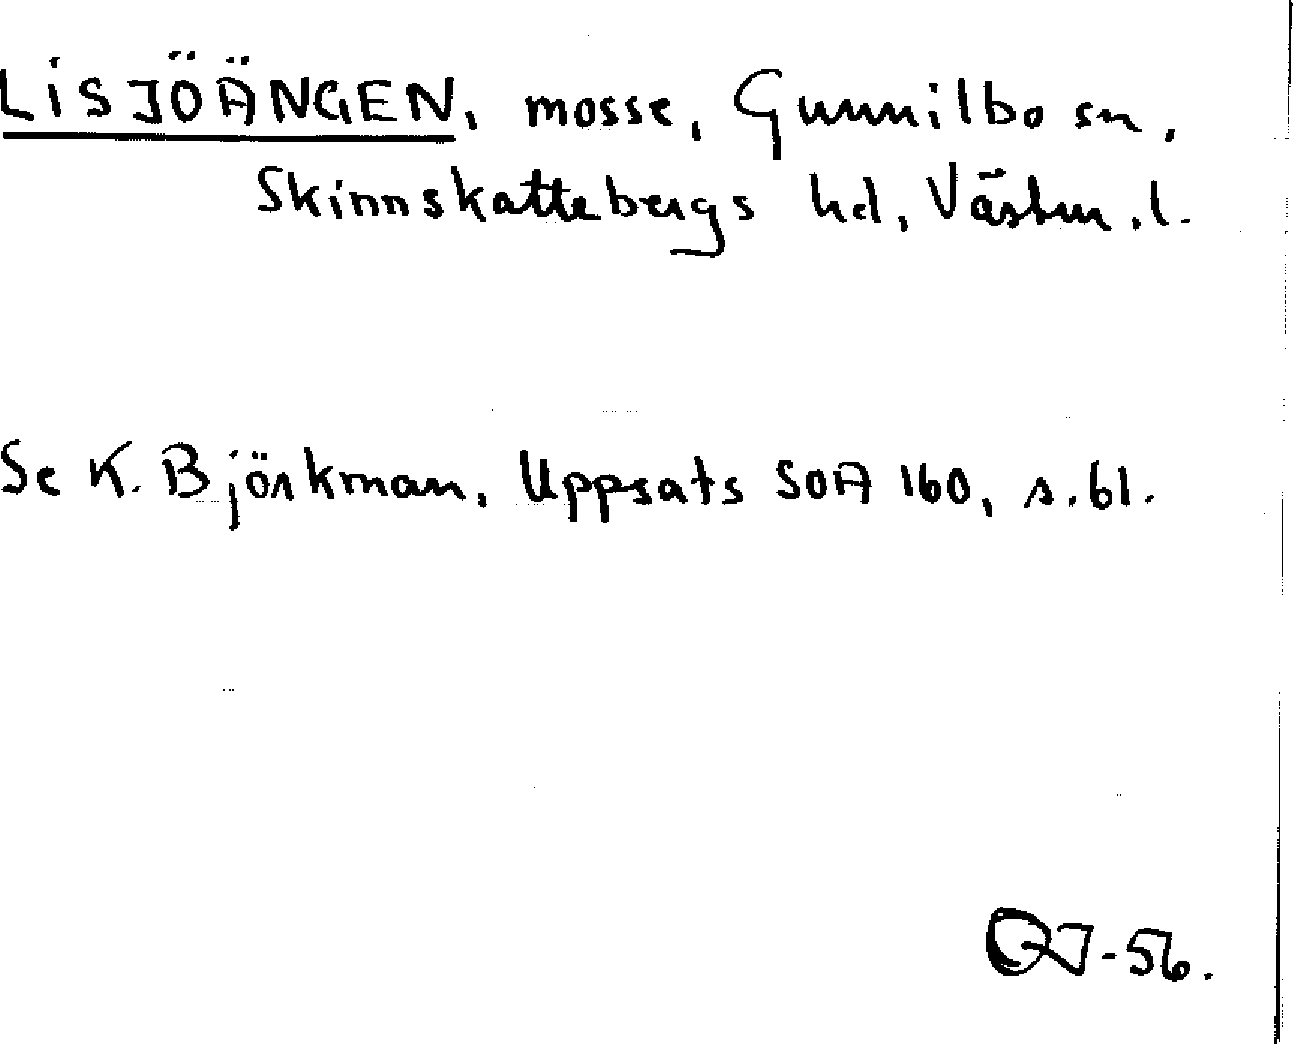 LISJÖÄNGEN, mosse, Gunnilbo sn,
Skinnskattebergs hd, Västm. l.
Se K. Björkman, Uppsats SOA 160, s. 61.
OJ-56.